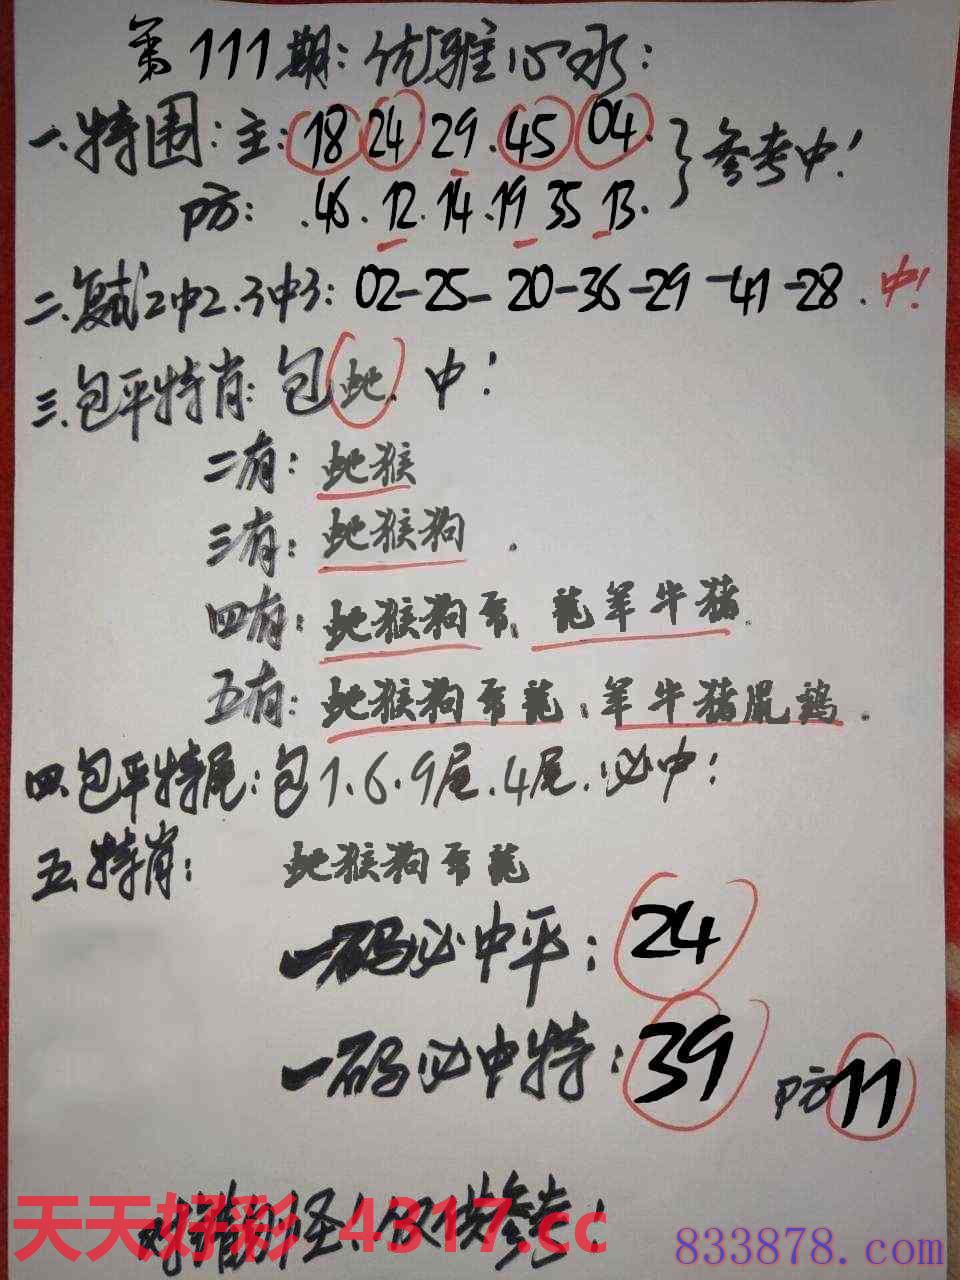 第111期:优雅心水:
一.特围:主:18 24.29.45 04.}参考中!
防:.46.12.14.19 35 13.
二.复式2中2.3中3:02-25-20-36-29-41-28.中!
三.包平特肖:包蛇.中!
二有:蛇猴
三有:蛇猴狗.
四有:蛇猴狗 龍羊牛猪
五有:蛇猴狗 龍:羊牛猪鼠鸡.
四.包平特尾:包1.6.9尾.4尾.必中!
五.特肖: 蛇猴狗 龍
一码必中平:24
一码必中特:39 防11
如有错勿怪!仅供参考!
天天好彩 4317.cc
833878.com